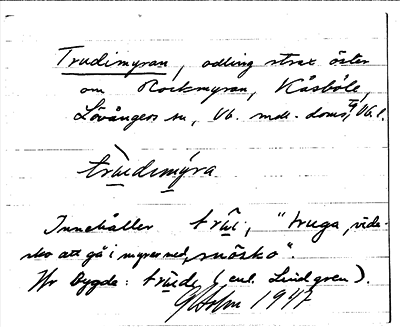 Trudimyran, odling strax öster
om Rockmyran, Kåsböle,
Lövångers sn, Vb. mdr.-doms, Vb. l.
trùdımýra
Innehåller trûi, "truga, vide-
sko att gå i myrar med, snösko".
Hr Bygde: trùde (enl. Lindgren).
G Holm 1947